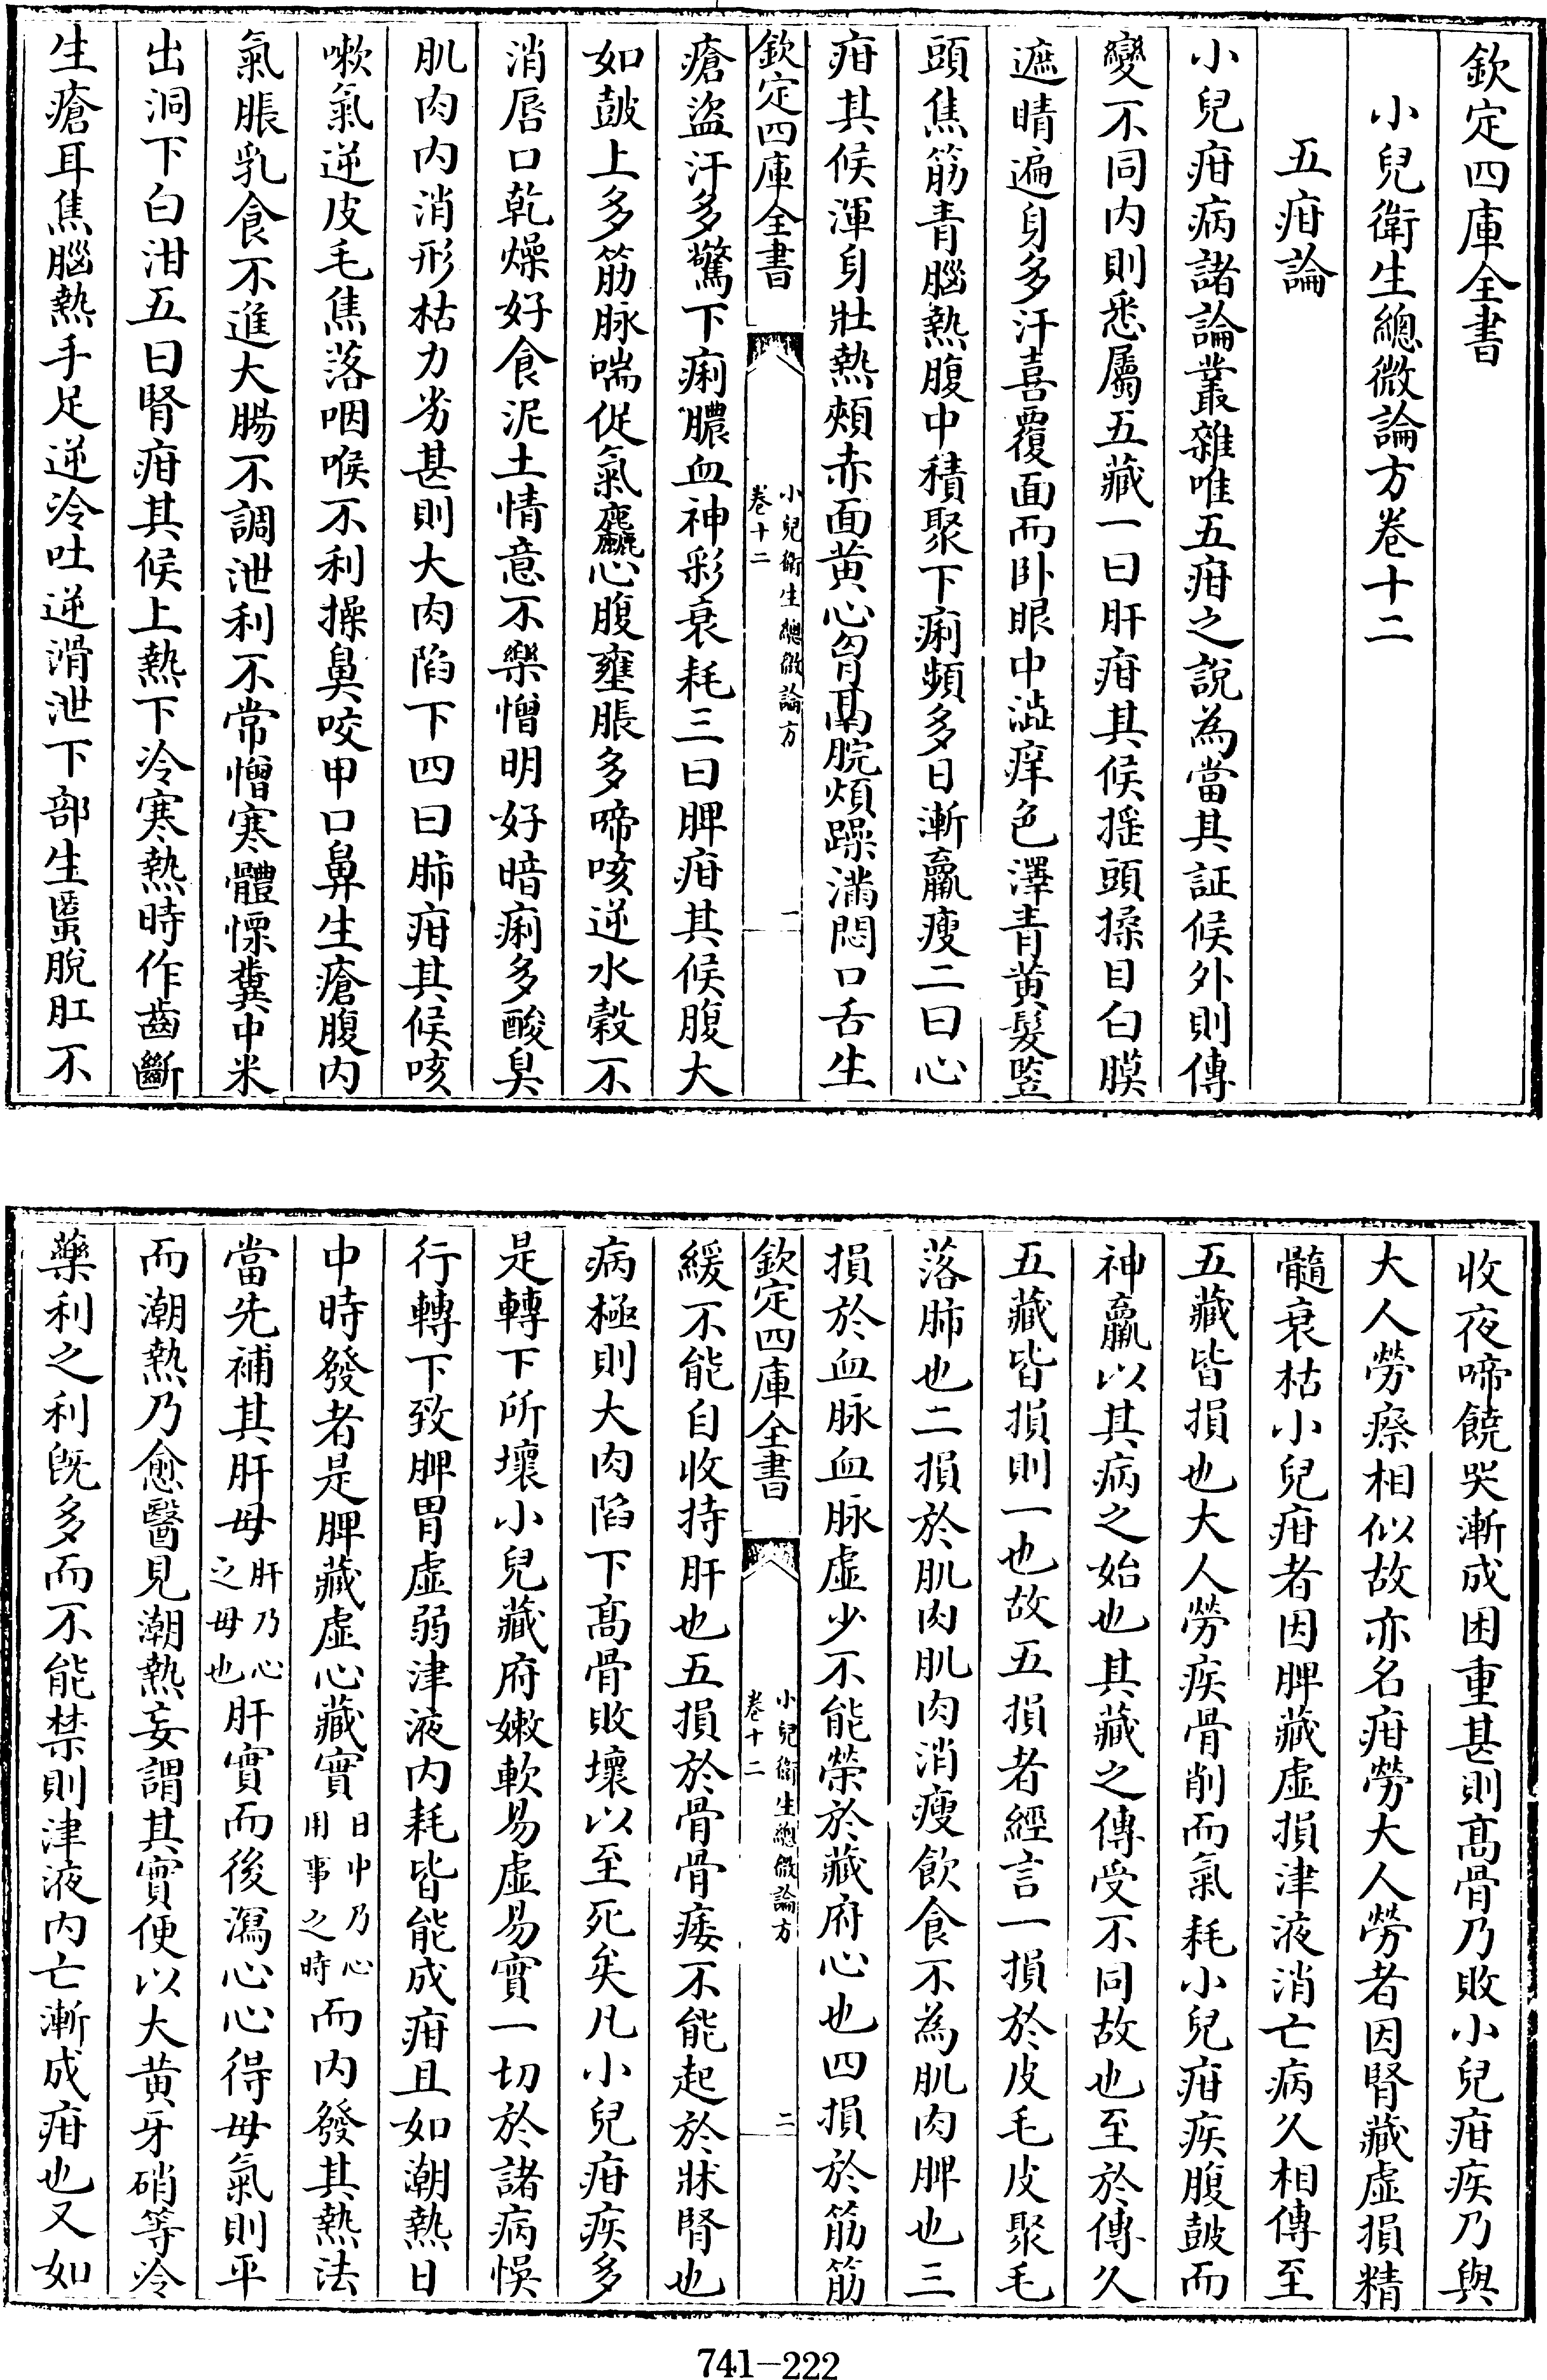 欽定四庫全書
小兒衛生總微論方卷十二
五疳論
小兒疳病諸論叢雜唯五疳之說為當其証候外則傳
變不同内則悉屬五藏一曰肝疳其候揺頭揉目白膜
遮睛遍身多汗喜覆面而卧眼中澁痒色澤青黄髮竪
頭焦筋青腦熱腹中積聚下痢頻多日漸羸瘦二曰心
疳其候渾身壯熱頰赤面黄心胷鬲脘煩躁滿悶口舌生
欽定四庫全書
小兒衛生總微論方
卷十二
一
瘡盜汗多驚下痢膿血神彩衰耗三曰脾疳其候腹大
如鼓上多筋脉喘促氣麤心腹壅脹多啼咳逆水穀不
消唇口乾燥好食泥土情意不樂憎明好暗痢多酸臭
肌肉内消形枯力劣甚則大肉陷下四曰肺疳其候咳
嗽氣逆皮毛焦落咽喉不利操鼻咬甲口鼻生瘡腹内
氣脹乳食不進大腸不調泄利不常憎寒體慄糞中米
出洞下白泔五曰腎疳其候上熱下冷寒熱時作齒齗
生瘡耳焦腦熱手足逆冷吐逆滑泄下部生䘌脫肛不
收夜啼饒哭漸成困重甚則髙骨乃敗小兒疳疾乃與
大人勞瘵相似故亦名疳勞大人勞者因腎藏虛損精
髓衰枯小兒疳者因脾藏虛損津液消亡病久相傳至
五藏皆損也大人勞疾骨削而氣耗小兒疳疾腹鼓而
神羸以其病之始也其藏之傳受不同故也至於傳久
五藏皆損則一也故五損者經言一損於皮毛皮聚毛
落肺也二損於肌肉肌肉消瘦飲食不為肌肉脾也三
損於血脉血脉虛少不能榮於藏府心也四損於筋筋
欽定四庫全書
小兒衛生總微論方
卷十二
二
緩不能自收持肝也五損於骨骨痿不能起於牀腎也
病極則大肉陷下髙骨敗壞以至死矣凡小兒疳疾多
是轉下所壞小兒藏府嫩軟易虛易實一切於諸病悞
行轉下致脾胃虛弱津液内耗皆能成疳且如潮熱日
中時發者是脾藏虛心藏實日中乃心用事之時而内發其熱法
當先補其肝母肝乃心之母也肝實而後瀉心心得母氣則平
而潮熱乃愈醫見潮熱妄謂其實便以大黄牙硝等冷
藥利之利既多而不能禁則津液内亡漸成疳也又如
741-222